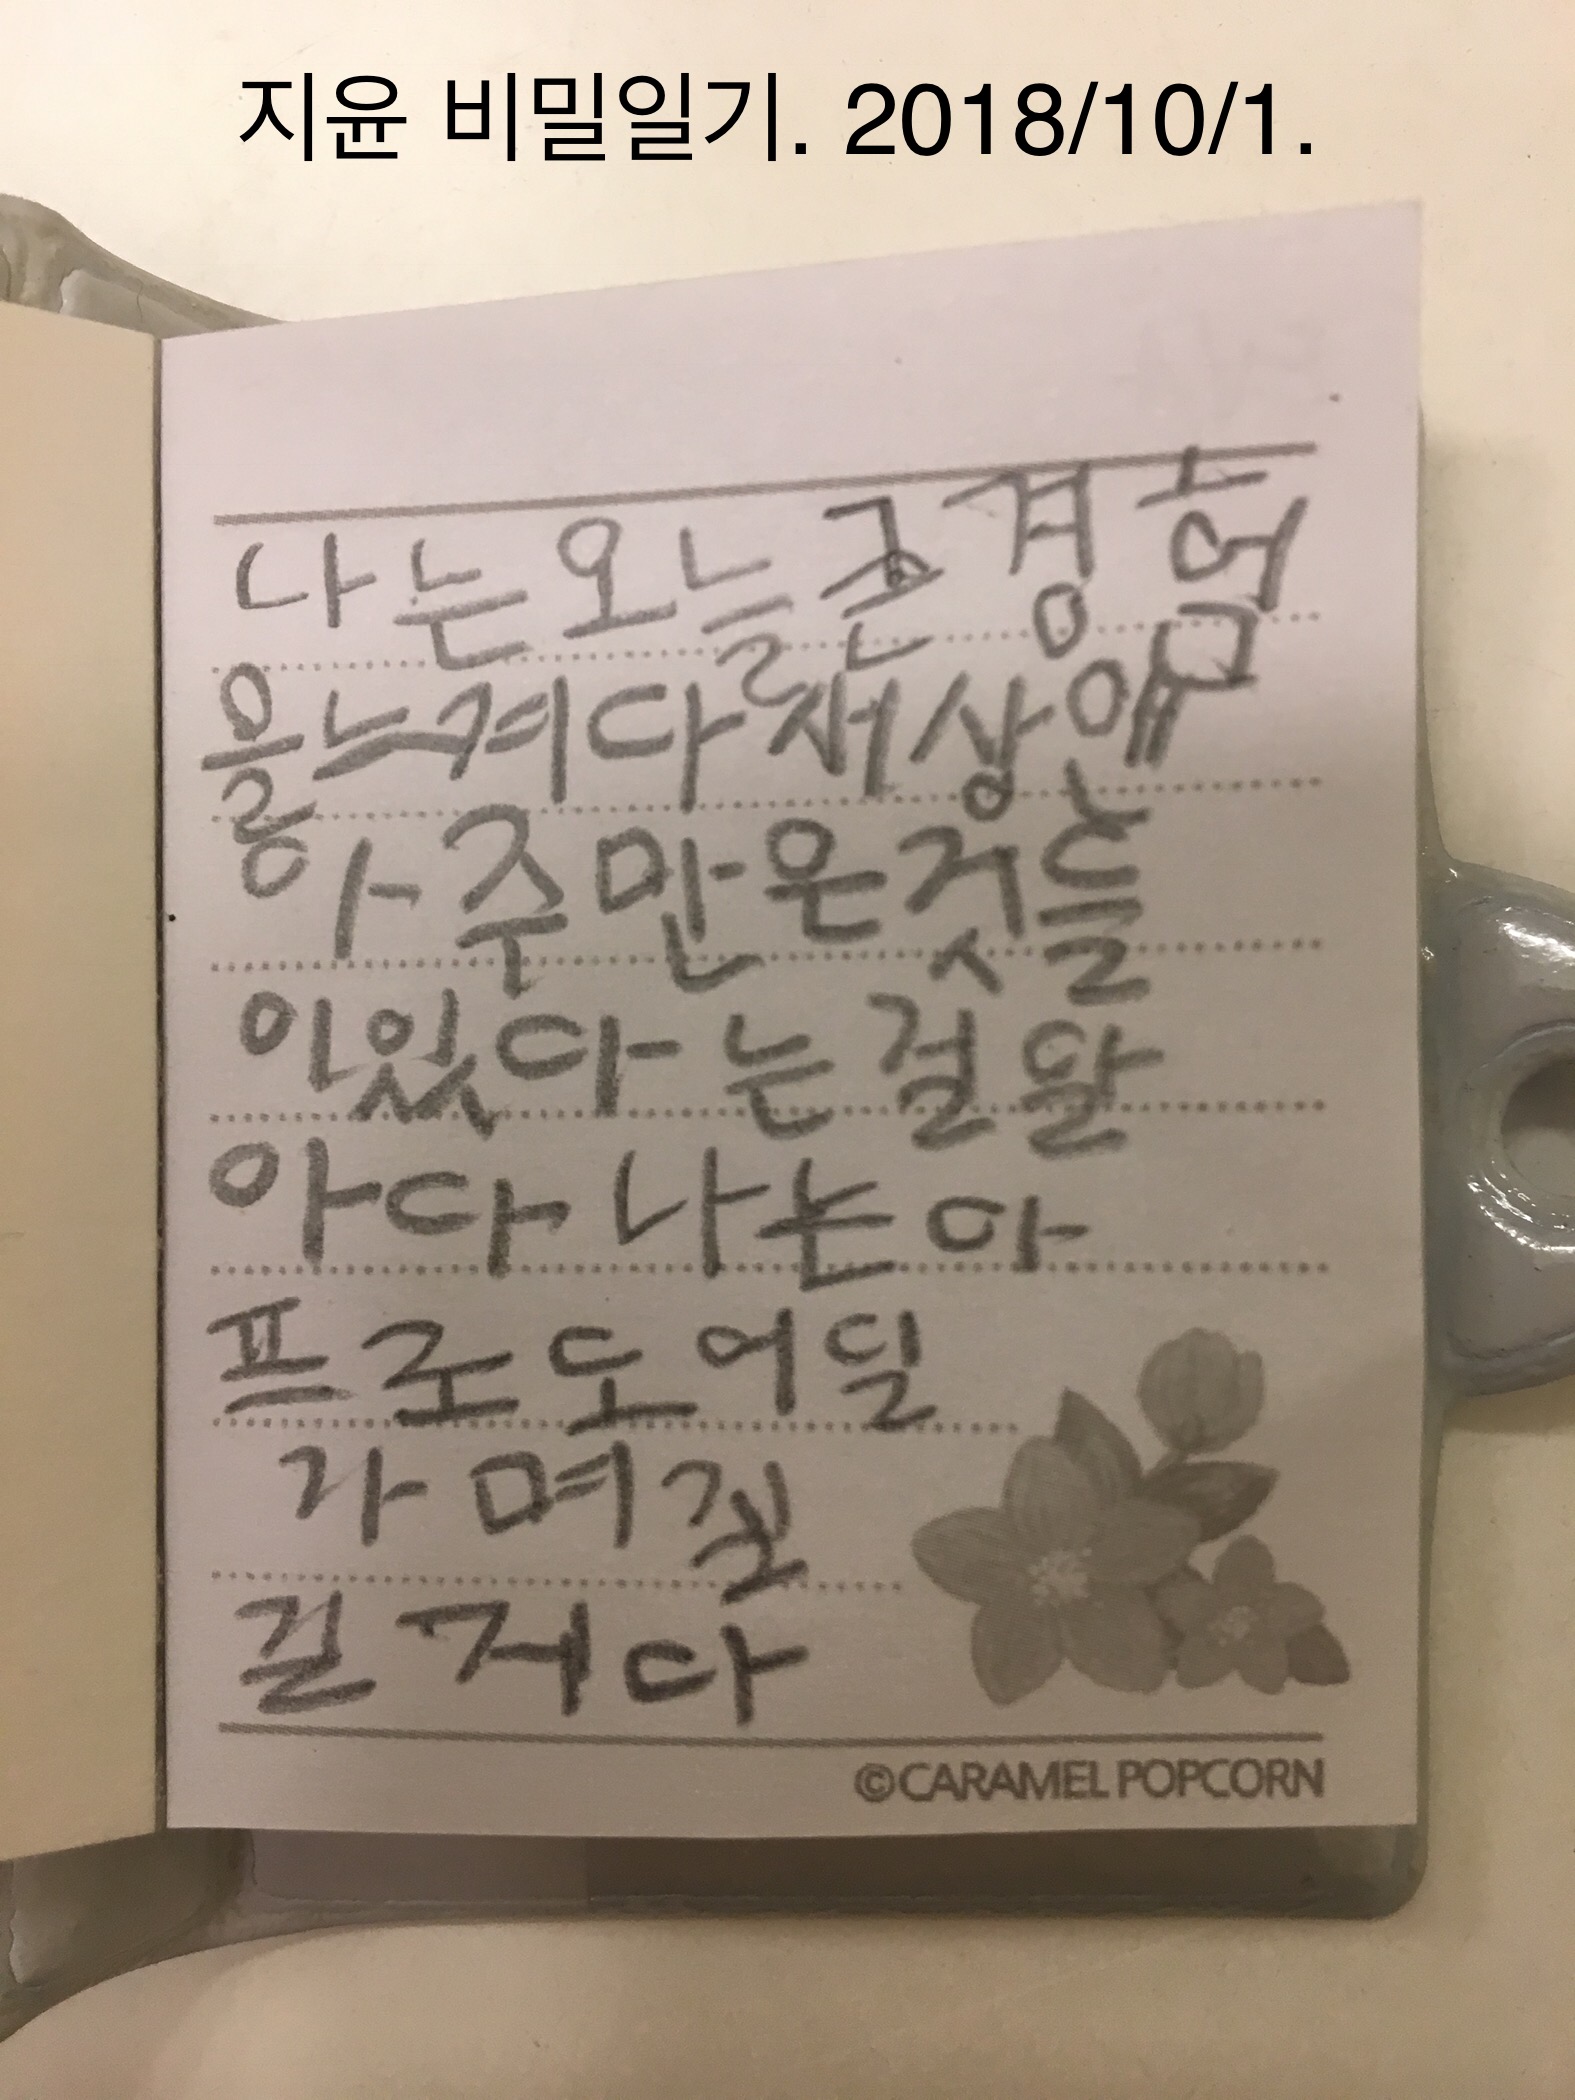 지윤 비밀일기. 2018/10/1.
나는오늘큰경험
을느겨다세상애
아주만은것들
이있다는걸알
아다나는아
프로도어딜
가며짖
길거다
©CARAMEL POPCORN